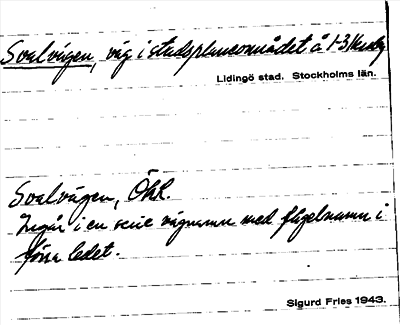 Svalvägen, väg i stadsplaneområdet å 1-3
Lidingö stad. Stockholms län.
Svalvägen, ÖhR.
Ingår i en serie vägnamn med fågelnamn i
förra ledet.
Sigurd Fries 1943.